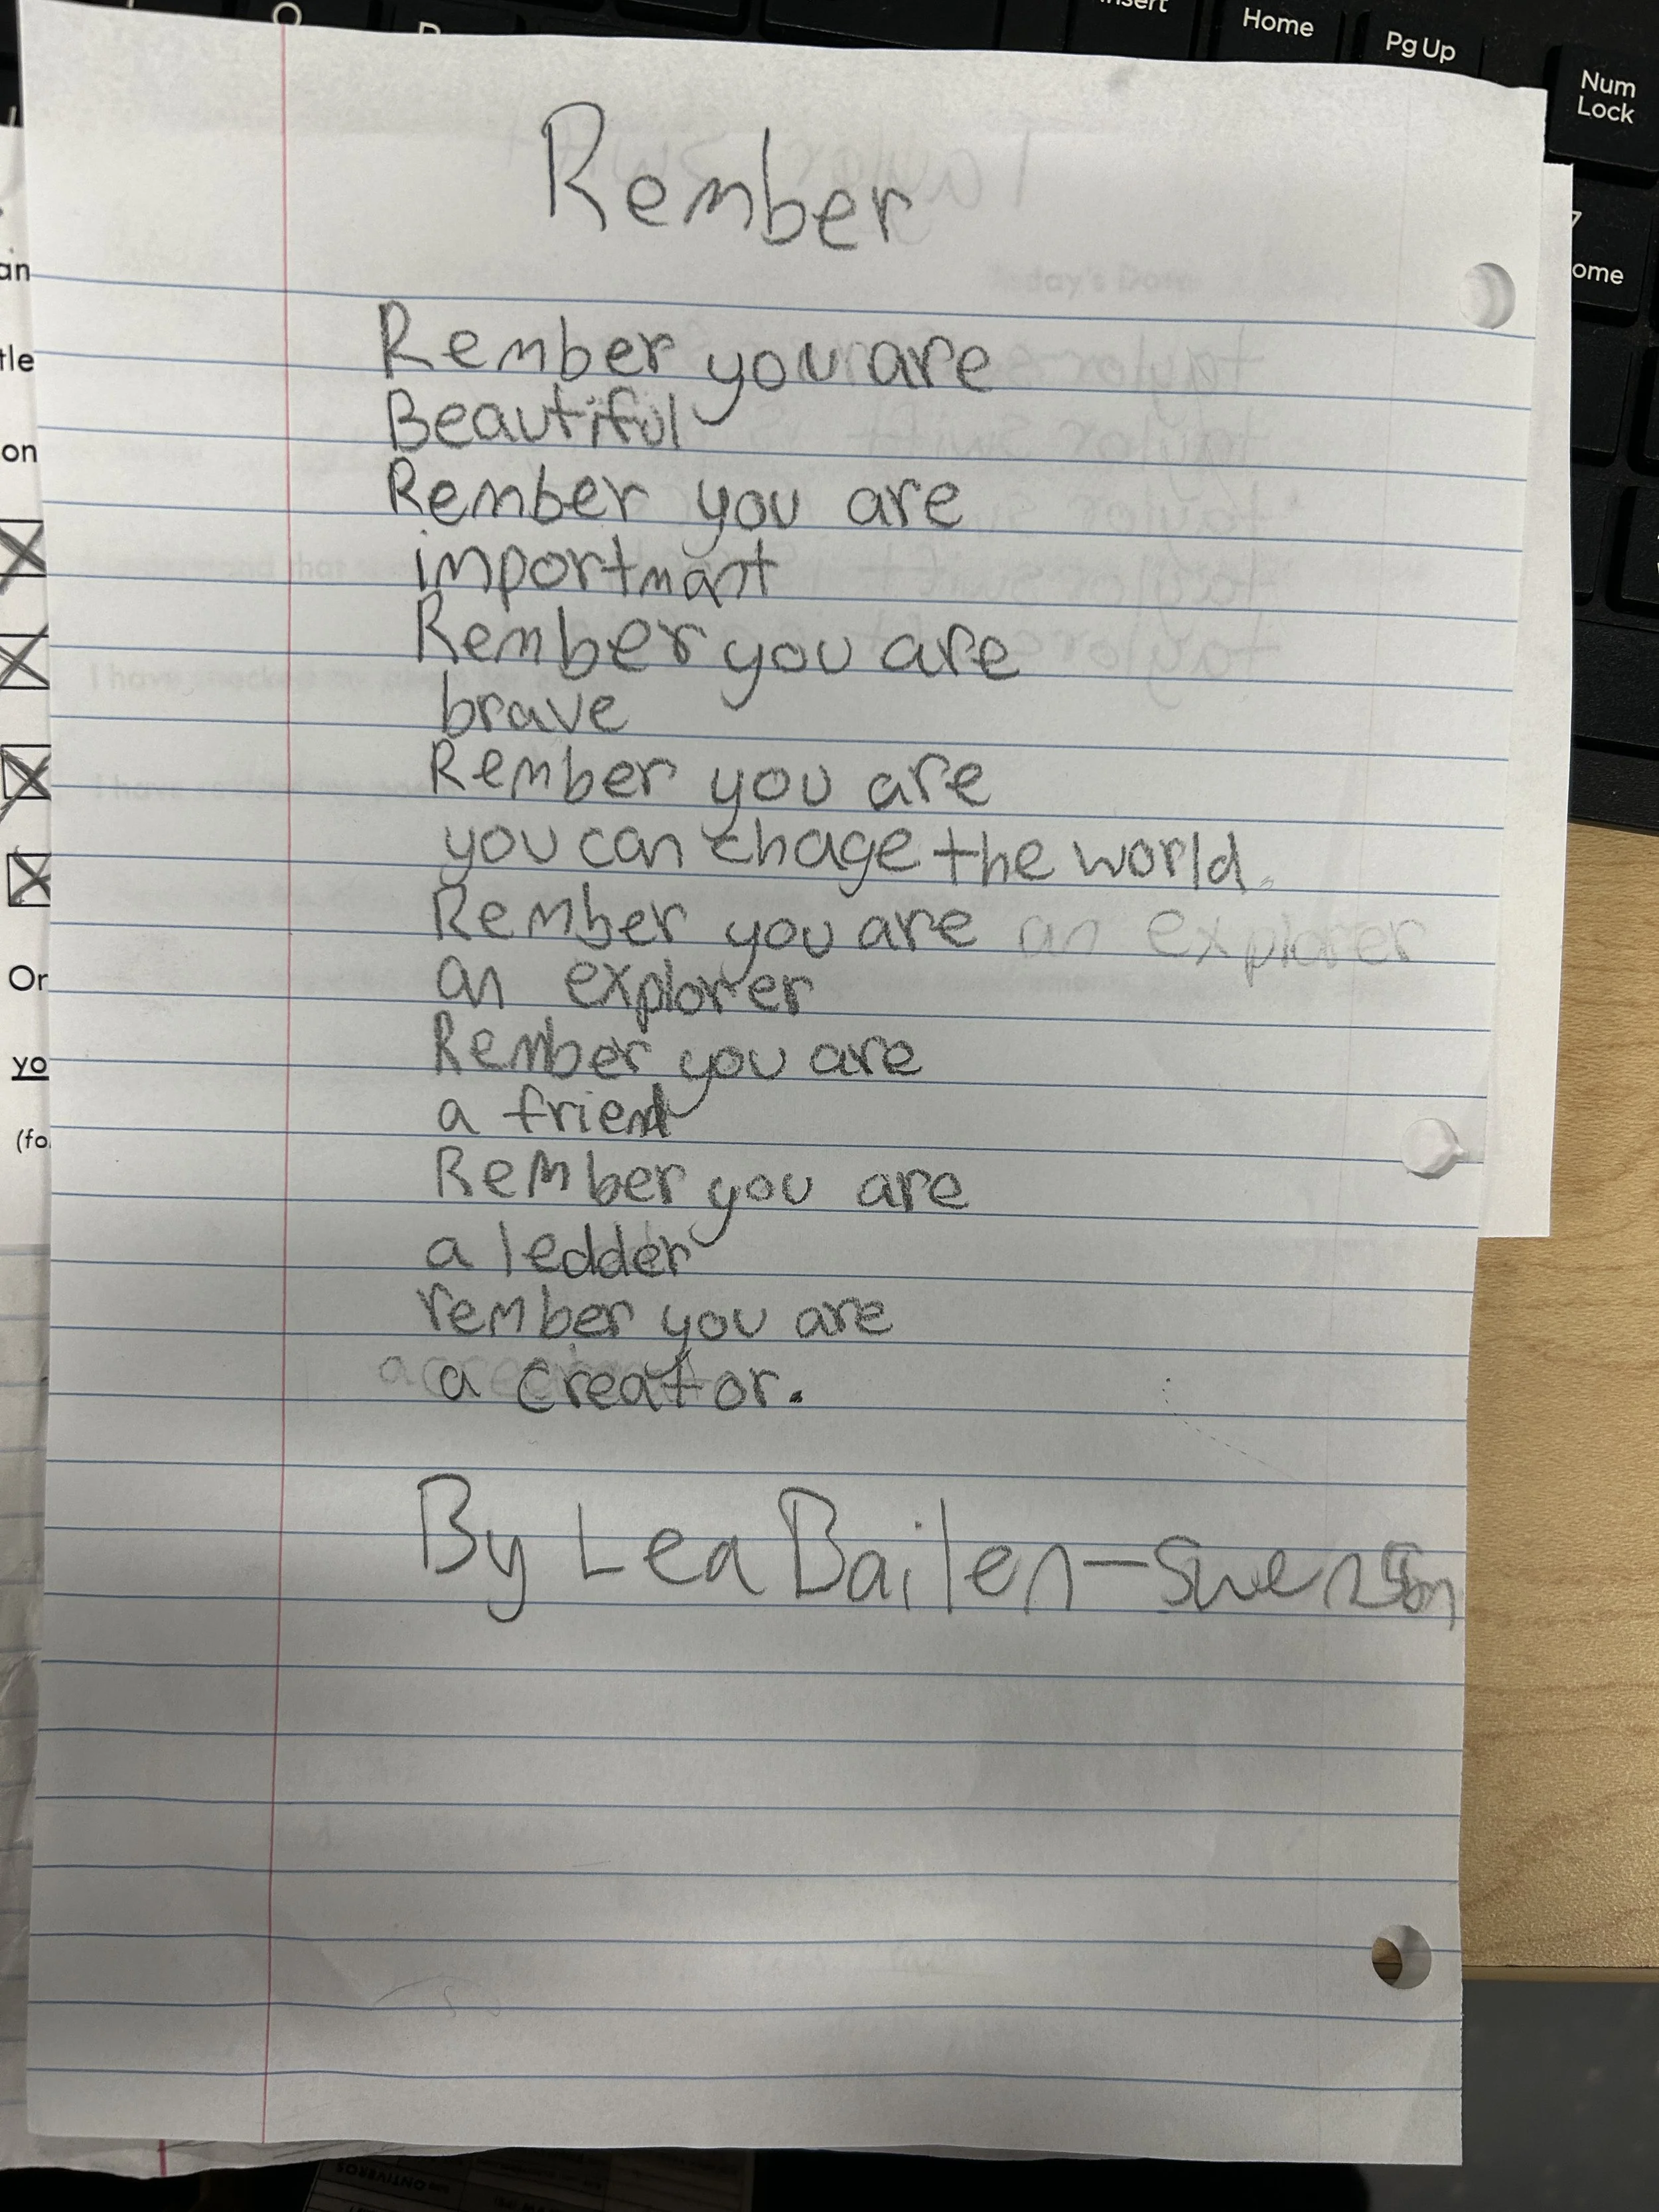 Insert
Home
Pg Up
Num
Lock
7
ome
an
tle
on
Or
yo
(fo
Rember
Rember you are
Beautiful
Rember you are
importmant
Rember you are
brave
Rember you are
you can chage the world.
Rember you are an explorer
an explorer
Rember you are
a friend
Rember you are
a ledder
rember you are
a creator.
By Lea Bailen-Swenson